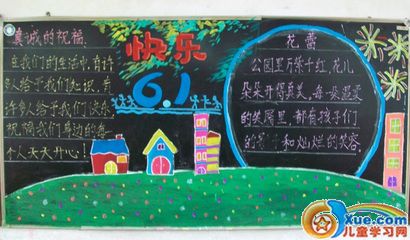 真诚的祝福:
在我们的生活中,有许
多人给予我们知识,有
许多人给予我们快乐,
祝愿我们身边的每一
个人天天开心!
快乐
6.1
花蕾
公园里万紫千红,花儿
朵朵开得真美,每一朵温柔
的笑靥里,都有孩子们
的 和灿烂的笑容.
3Xue.com
儿童学习网